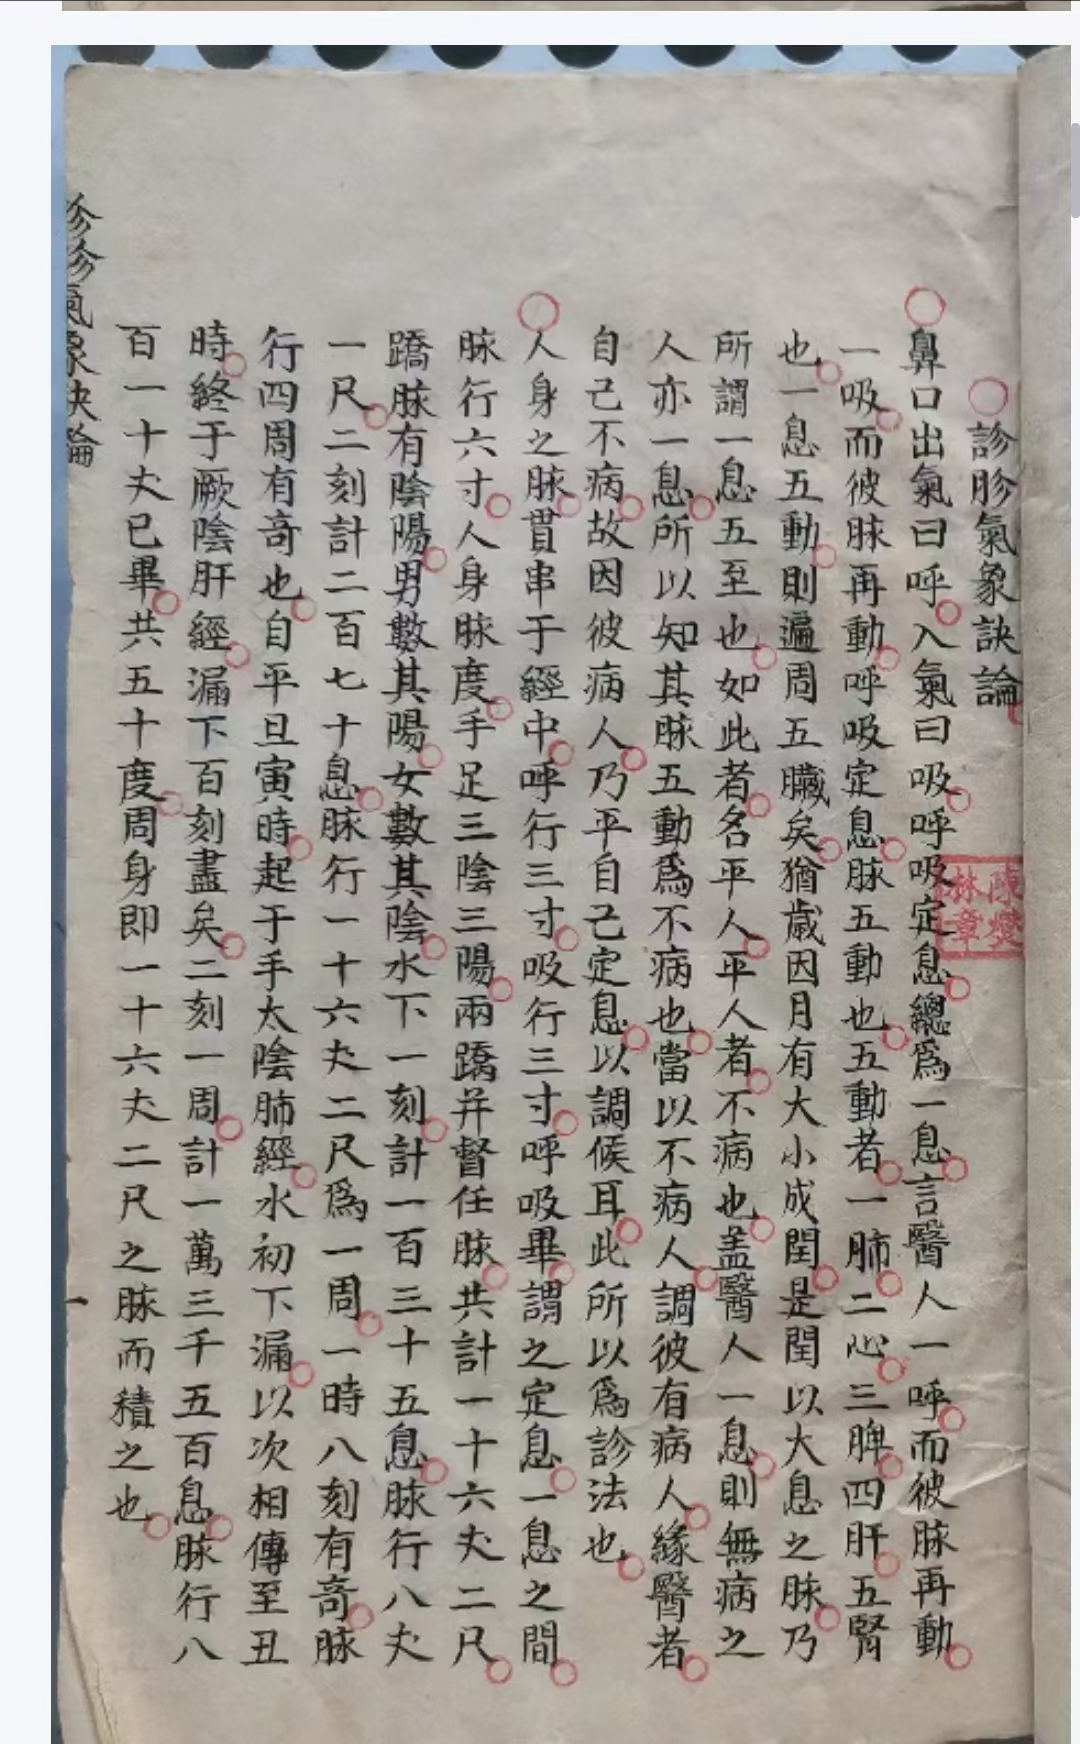 診胗氣象訣論
鼻口出氣曰呼入氣曰吸呼吸定息總爲一息言醫人一呼而彼脉再動
一吸而彼脉再動呼吸定息脉五動也五動者一肺二心三脾四肝五腎
也一息五動則遍周五臟矣猶歲因月有大小成閏是閏以大息之脉乃
所謂一息五至也如此者名平人平人者不病也盖醫人一息則無病之
人亦一息所以知其脉五動爲不病也當以不病人調彼有病人緣醫者
自己不病故因彼病人乃平自己定息以調候耳此所以爲診法也
人身之脉貫串于經中呼行三寸吸行三寸呼吸畢謂之定息一息之間
脉行六寸人身脉度手足三陰三陽兩蹻并督任脉共計一十六丈二尺
蹻脉有陰陽男數其陽女數其陰水下一刻計一百三十五息脉行八丈
一尺二刻計二百七十息脉行一十六丈二尺爲一周一時八刻有奇脉
行四周有奇也自平旦寅時起于手太陰肺經水初下漏以次相傳至丑
時終于厥陰肝經漏下百刻盡矣二刻一周計一萬三千五百息脉行八
百一十丈已畢共五十度周身即一十六丈二尺之脉而積之也
診胗氣象訣論
一
林章